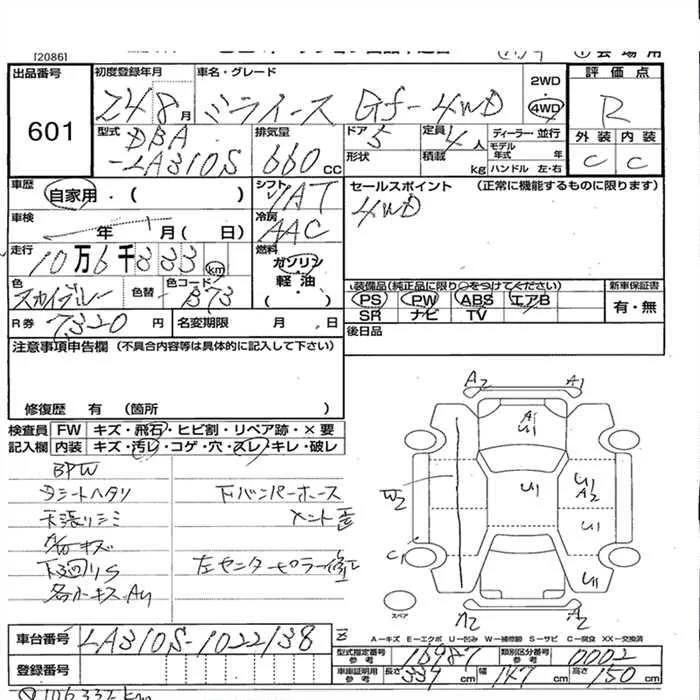 [2086]
出品番号 初度登録年月 車名・グレード 2WD 評価点
601 24 8月 ミライース Gf-4WD 4WD R
型式 DBA-LA310S 排気量 660cc ドア 5 定員 4人 ディーラー・並行 外装 内装
形状 積載 kg モデル年式 年 ハンドル 左・右 C C
車歴 自家用・( ) シフト IAT セールスポイント (正常に機能するものに限ります)
4WD
車検 年 月( 日) 冷房 AAC
走行 10万6千333km 燃料 ガソリン・軽油・
色 スカイブルー 色替 色コード B73 装備品(純正品に限り○をつけてください) 新車保証書
PS PW ABS エアB 有・無
SR ナビ TV
R券 7320円 名変期限 月 日 後日品
注意事項申告欄 (不具合内容等は具体的に記入して下さい)
修復歴 有 (箇所
検査員 FW キズ・飛石・ヒビ割・リペア跡・×要
記入欄 内装 キズ・汚レ・コゲ・穴・スレ・キレ・破レ
BPW
シートヘタリ 下バンパーホース
天張リシミ メント歪
内キズ
下廻リS 左センターピラー修正
各所キズAU
A2 A1
A1 U1
W2 U1 U1 A2
U1
C1 U1
スペア A2 A2
A-キズ E-エクボ U-凹み W-補修跡 S-サビ C-腐食 XX-交換済
車台番号 LA310S-1022138
型式指定番号 参考 16987 類別区分番号 参考 0002
登録番号 車庫証明用 参考 長さ 339cm 幅 147cm 高さ 150cm
106,333km